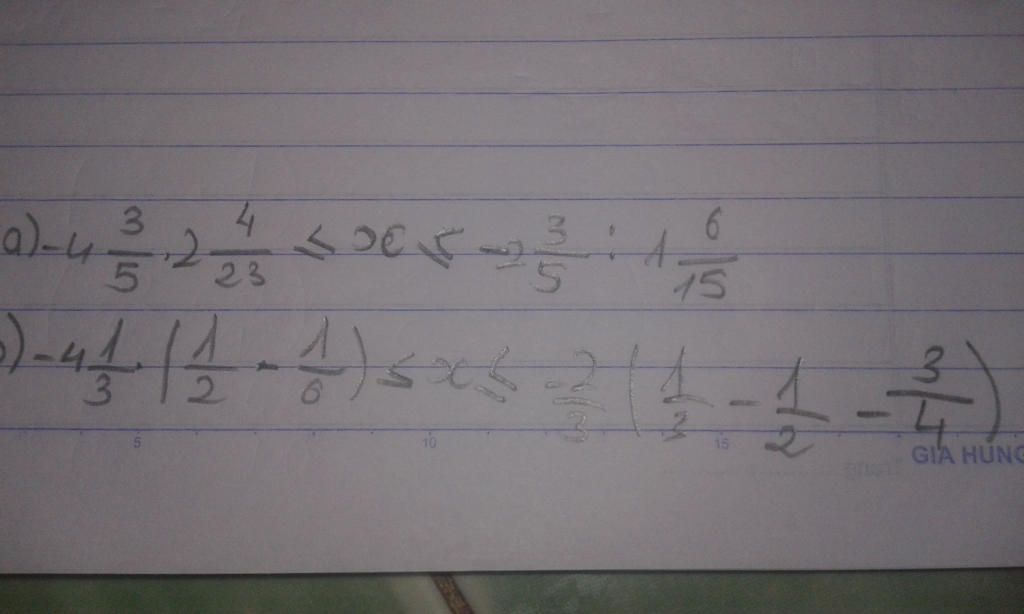 a) -4 3/5 . 2 4/23 ≤ x ≤ -2 3/5 : 1 6/15
) -4 1/3 . (1/2 - 1/6) ≤ x ≤ -2/3 (1/3 - 1/2 - 3/4)
5 10 15
GIA HUNG
Trang